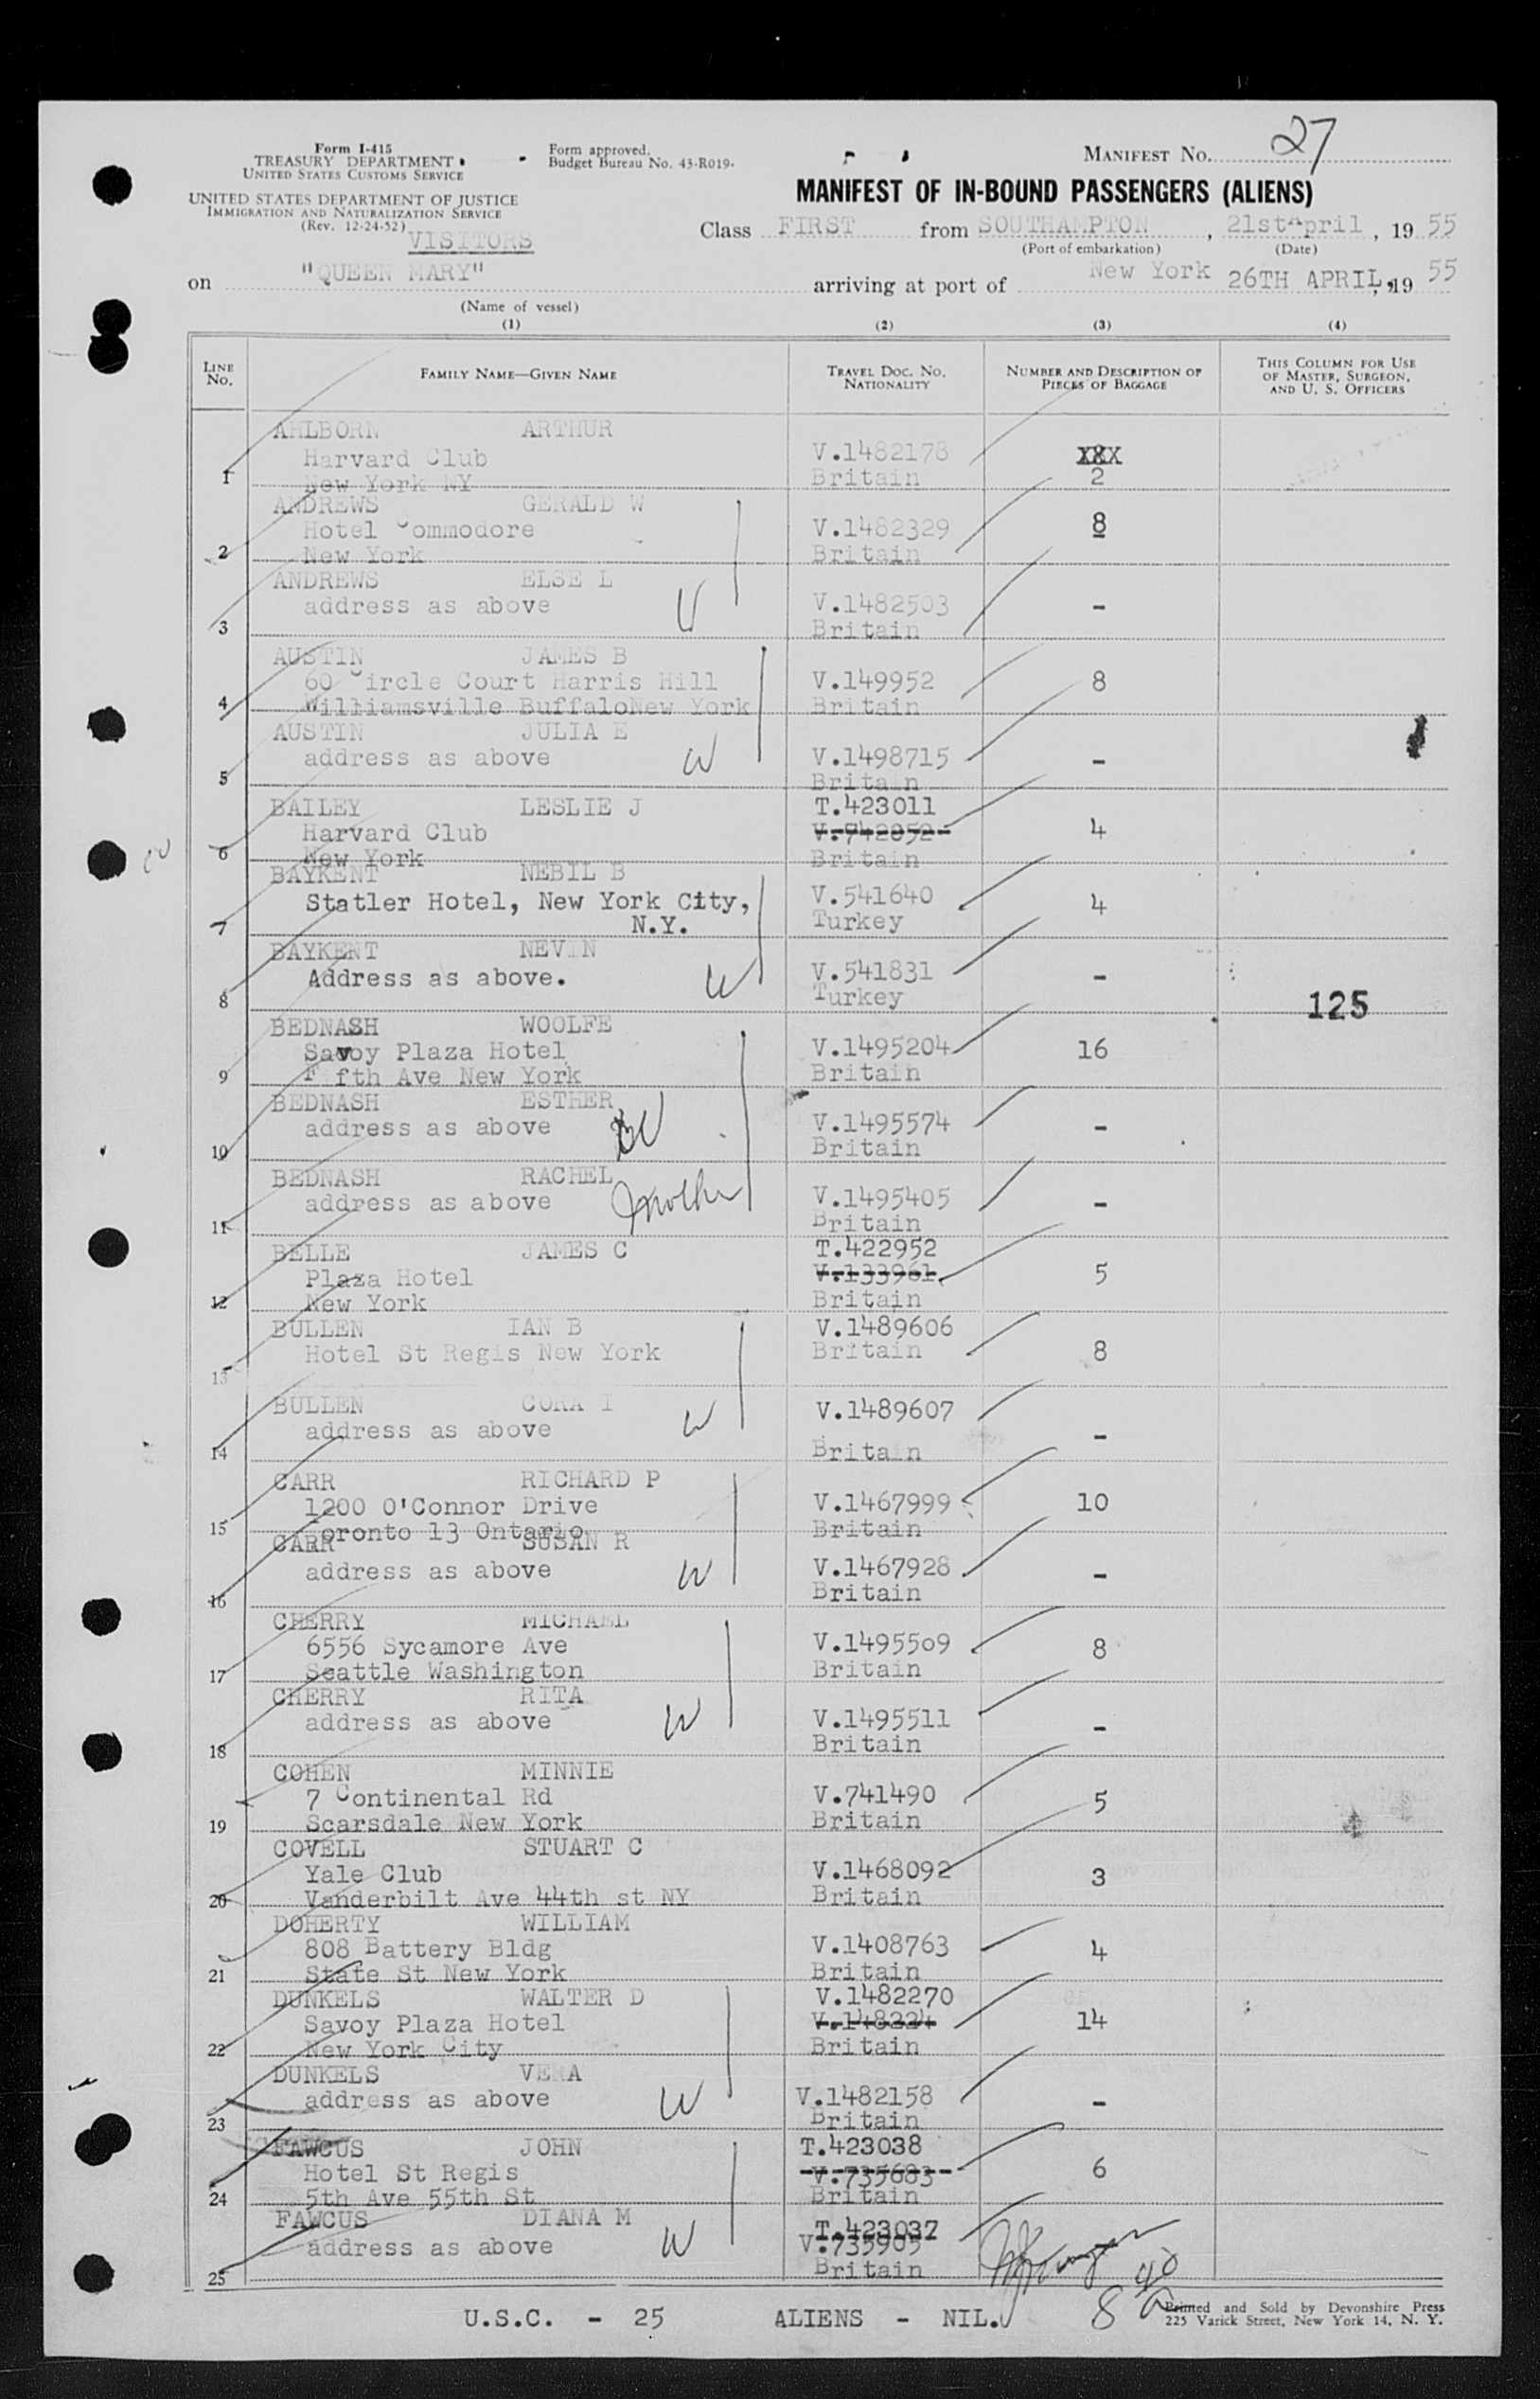 Form I-415
TREASURY DEPARTMENT
UNITED STATES CUSTOMS SERVICE
Form approved.
Budget Bureau No. 43-R019.
MANIFEST NO. 27
UNITED STATES DEPARTMENT OF JUSTICE
IMMIGRATION AND NATURALIZATION SERVICE
(Rev. 12-24-52)
VISITORS
MANIFEST OF IN-BOUND PASSENGERS (ALIENS)
Class FIRST from SOUTHAMPTON, 21st April, 19 55
(Port of embarkation) (Date)
on "QUEEN MARY" arriving at port of New York 26TH APRIL, 19 55
(Name of vessel)
(1) (2) (3) (4)
LINE NO. FAMILY NAME—GIVEN NAME TRAVEL DOC. NO. NATIONALITY NUMBER AND DESCRIPTION OF PIECES OF BAGGAGE THIS COLUMN FOR USE OF MASTER, SURGEON, AND U. S. OFFICERS
AHLBORN ARTHUR
Harvard Club V.1482178 XXX
1 New York NY Britain 2
ANDREWS GERALD W
Hotel Commodore V.1482329 8
2 New York Britain
ANDREWS ELSE L
address as above W V.1482503 -
3 Britain
AUSTIN JAMES B
60 Circle Court Harris Hill V.149952 8
4 Williamsville BuffaloNew York Britain
AUSTIN JULIA E
address as above W V.1498715 -
5 Britain
BAILEY LESLIE J T.423011
Harvard Club V.742052 4
6 New York Britain
BAYKENT NEBIL B
Statler Hotel, New York City, V.541640 4
7 N.Y. Turkey
BAYKENT NEVIN
Address as above. W V.541831 -
8 Turkey 125
BEDNASH WOOLFE
Savoy Plaza Hotel V.1495204 16
9 F fth Ave New York Britain
BEDNASH ESTHER
address as above W V.1495574 -
10 Britain
BEDNASH RACHEL
address as above Mother V.1495405 -
11 Britain
BELLE JAMES C T.422952
Plaza Hotel V.133961 5
12 New York Britain
BULLEN IAN B V.1489606
Hotel St Regis New York Britain 8
13
BULLEN CORA I V.1489607
address as above W -
14 Britain
CARR RICHARD P
1200 O'Connor Drive V.1467999 10
15 Toronto 13 Ontario Britain
CARR SUSAN R
address as above W V.1467928 -
16 Britain
CHERRY MICHAEL
6556 Sycamore Ave V.1495509 8
17 Seattle Washington Britain
CHERRY RITA
address as above W V.1495511 -
18 Britain
COHEN MINNIE
7 Continental Rd V.741490 5
19 Scarsdale New York Britain
COVELL STUART C
Yale Club V.1468092 3
20 Vanderbilt Ave 44th st NY Britain
DOHERTY WILLIAM
808 Battery Bldg V.1408763 4
21 State St New York Britain
DUNKELS WALTER D V.1482270
Savoy Plaza Hotel V.148224 14
22 New York City Britain
DUNKELS VERA
address as above W V.1482158 -
23 Britain
FAWCUS JOHN T.423038
Hotel St Regis V.735683 6
24 5th Ave 55th St Britain
FAWCUS DIANA M T.423037
address as above W V.735905
25 Britain
U.S.C. - 25 ALIENS - NIL. 8
Printed and Sold by Devonshire Press
225 Varick Street, New York 14, N. Y.